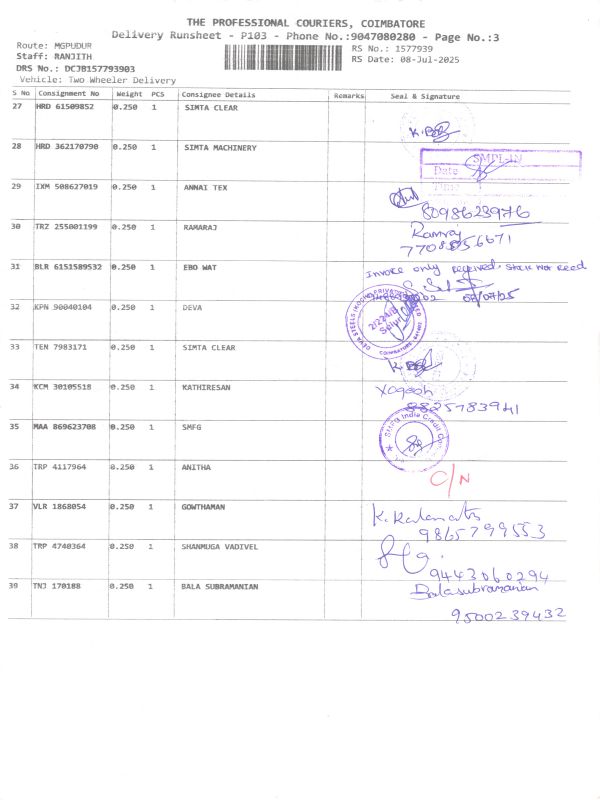 THE PROFESSIONAL COURIERS, COIMBATORE
Delivery Runsheet - P103 - Phone No.:9047080280 - Page No.:3
Route: MGPUDUR
RS No.: 1577939
Staff: RANJITH
RS Date: 08-Jul-2025
DRS No.: DCJB157793903
Vehicle: Two Wheeler Delivery
S No Consignment No Weight PCS Consignee Details Remarks Seal & Signature
27 HRD 61509852 0.250 1 SIMTA CLEAR
28 HRD 362170790 0.250 1 SIMTA MACHINERY
SMPL-IN
Date
Time
29 IXM 508627019 0.250 1 ANNAI TEX
8098623976
30 TRZ 255001199 0.250 1 RAMARAJ
Ramraj
31 BLR 6151589532 0.250 1 EBO WAT
Invoice only received, Stock Not Recd
08/07/25
32 KPN 90040104 0.250 1 DEVA
33 TEN 7983171 0.250 1 SIMTA CLEAR
34 KCM 30105518 0.250 1 KATHIRESAN
Yogesh
8825783941
35 MAA 869623708 0.250 1 SMFG
SMFG India Credit
36 TRP 4117964 0.250 1 ANITHA
C/N
37 VLR 1868054 0.250 1 GOWTHAMAN
9865799553
38 TRP 4740364 0.250 1 SHANMUGA VADIVEL
9443060294
39 TNJ 170188 0.250 1 BALA SUBRAMANIAN
Balasubramanian
9500239432